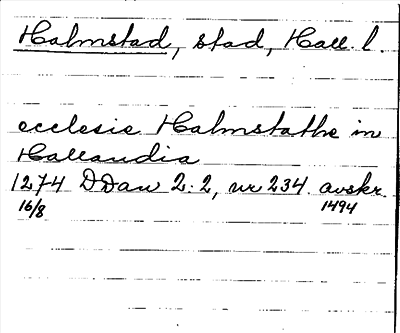 Halmstad, stad, Hall. l.
ecclesie Halmstathe in
Hallandia
1274 DDan 2:2, nr 234. avskr.
16/8 1494